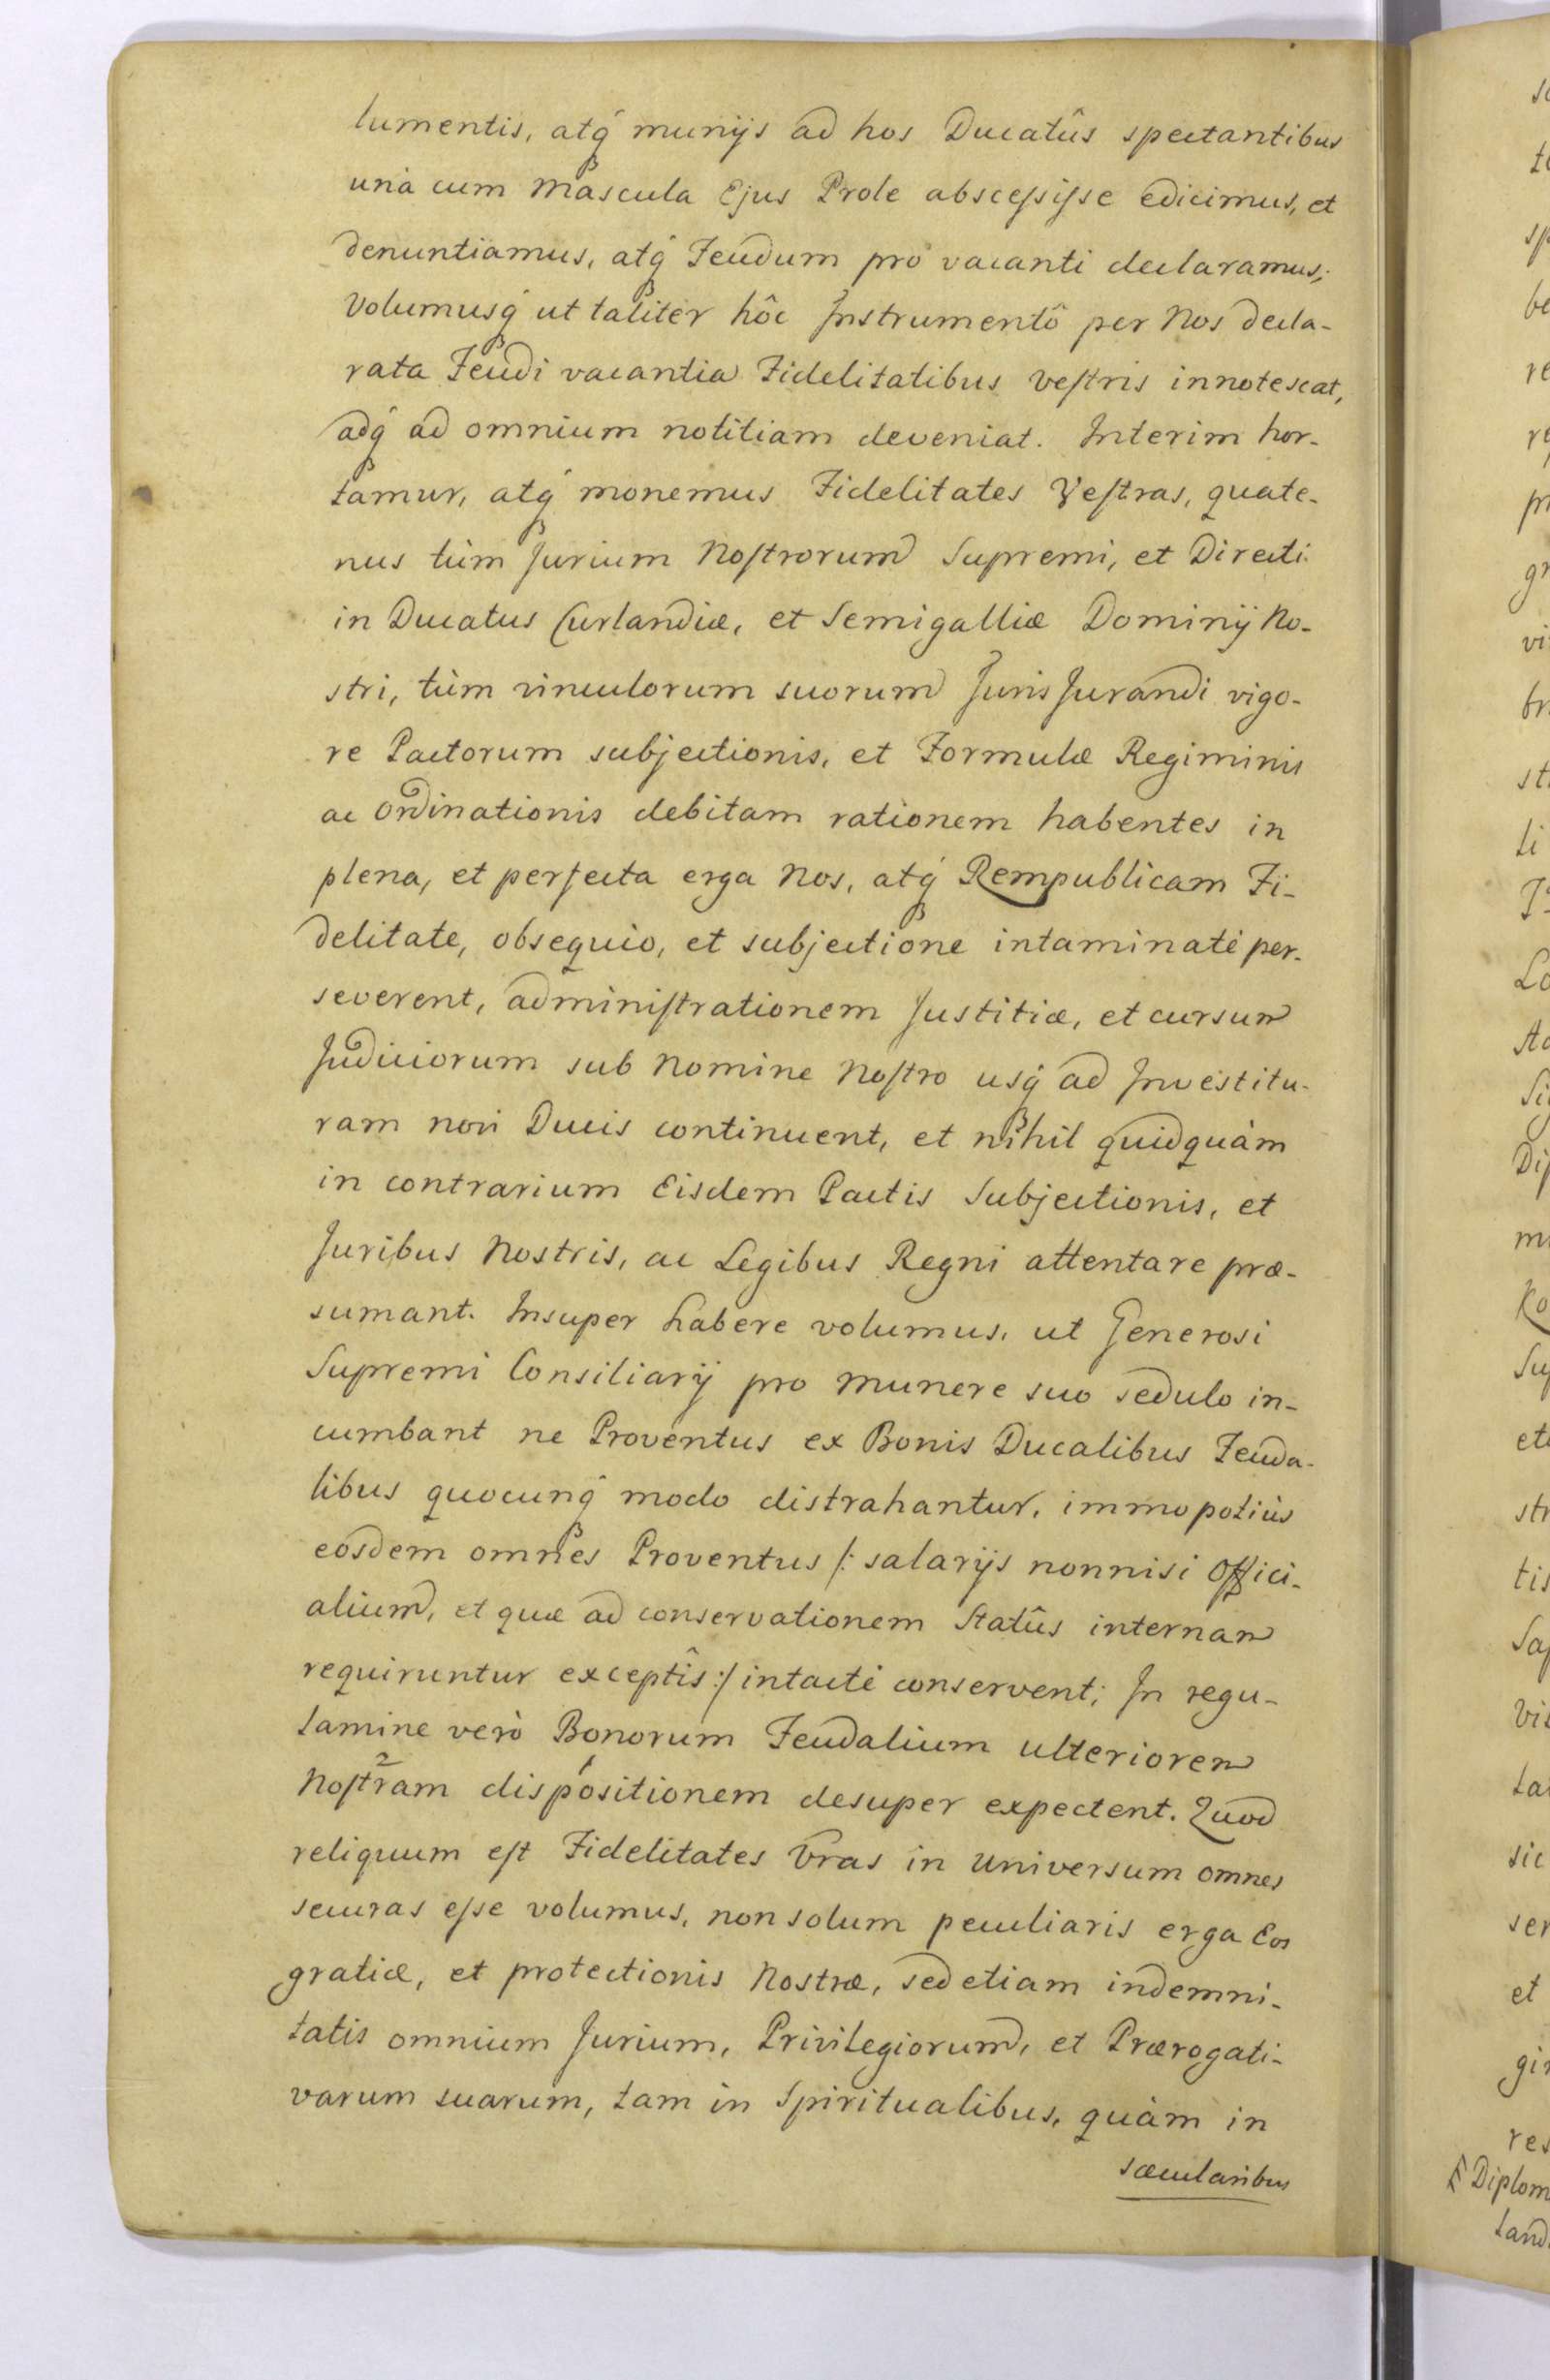 lumentis, atq́ munijs ad hos Ducatûs spectantibus
unà cum mascula Ejus Prole abscessisse edicimus, et
denuntiamus, atq́ Feudum pro vacanti declaramus;
Volumusq́ ut taliter hôc Instrumentô per Nos decla-
rata Feudi vacantia Fidelitatibus vestris innotescat,
adq́ ad omnium notitiam deveniat. Interim hor-
tamur, atq́ monemus Fidelitates Vestras, quate-
nus tùm Jurium Nostrorum Supremi, et Directi
in Ducatus Curlandiæ, et Semigalliæ Dominij No-
stri, tùm vinculorum suorum Juris Jurandi vigo-
re Pactorum subjectionis, et Formulæ Regiminis
ac Ordinationis debitam rationem habentes in
plena, et perfecta erga Nos, atq́ Rempublicam Fi-
delitate, obsequio, et subjectione intaminatè per-
severent, administrationem Justitiæ, et cursum
Judiciorum sub Nomine Nostro usq́ ad Investitu-
ram novi Ducis continuent, et nihil quidquàm
in contrarium Eisdem Pactis Subjectionis, et
Juribus Nostris, ac Legibus Regni attentare præ-
sumant. Insuper habere volumus, ut Generosi
Supremi Consiliarij pro munere suo sedulo in-
cumbant ne Proventus ex Bonis Ducalibus Feuda-
libus quocunq́ modo distrahantur, immo potiùs
eosdem omnes Proventus /: salarijs nonnisi Offici-
alium, et quæ ad conservationem Statûs internam
requiruntur exceptîs :/ intactè conservent; In regu-
lamine verò Bonorum Feudalium ulteriorem
Nostram dispositionem desuper expectent. Quod
reliquum est Fidelitates Vr̃as in universum omnes
securas esse volumus, non solum peculiaris erga Eos
gratiæ, et protectionis Nostræ, sed etiam indemni-
tatis omnium Jurium, Privilegiorum, et Prærogati-
varum suarum, tam in Spiritualibus, quàm in
sæcularibus